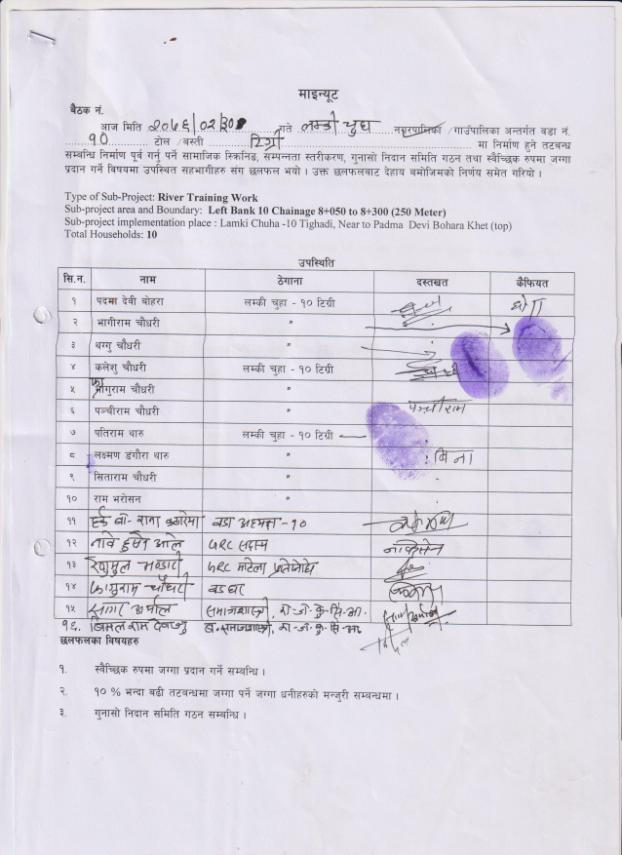 माइन्यूट
बैठक नं.
आज मिति २०७६/०२/३० गते लम्की चुहा नगरपालिका /गाउँपालिका अन्तर्गत वडा नं.
१० टोल /बस्ती टिग्री मा निर्माण हुने तटबन्ध
सम्बन्धि निर्माण पूर्व गर्नु पर्ने सामाजिक स्क्रिनिङ, सम्पन्नता स्तरीकरण, गुनासो निदान समिति गठन तथा स्वैच्छिक रुपमा जग्गा
प्रदान गर्ने विषयमा उपस्थित सहभागीहरु संग छलफल भयो । उक्त छलफलबाट देहाय बमोजिमको निर्णय समेत गरियो ।
Type of Sub-Project: River Training Work
Sub-project area and Boundary: Left Bank 10 Chainage 8+050 to 8+300 (250 Meter)
Sub-project implementation place : Lamki Chuha -10 Tighadi, Near to Padma Devi Bohara Khet (top)
Total Households: 10
उपस्थिति
सि.न. नाम ठेगाना दस्तखत कैफियत
१ पदमा देवी बोहरा लम्की चुहा - १० टिग्री
२ भागीराम चौधरी "
३ थग्गु चौधरी "
४ कलेशु चौधरी लम्की चुहा - १० टिग्री
५ फागुराम चौधरी "
६ पञ्चीराम चौधरी " पञ्चीराम
७ पतिराम थारु लम्की चुहा - १० टिग्री
८ लक्ष्मण डंगौरा थारु "
९ सिताराम चौधरी "
१० राम भरोसन "
११ वडा अध्यक्ष - १०
१२ GRC सदस्य
१३ GRC
१४ फागुराम चौधरी
१५
१६.
छलफलका विषयहरु
१. स्वैच्छिक रुपमा जग्गा प्रदान गर्ने सम्बन्धि ।
२. १० % भन्दा बढी तटबन्धमा जग्गा पर्ने जग्गा धनीहरुको मन्जुरी सम्बन्धमा ।
३. गुनासो निदान समिति गठन सम्बन्धि ।